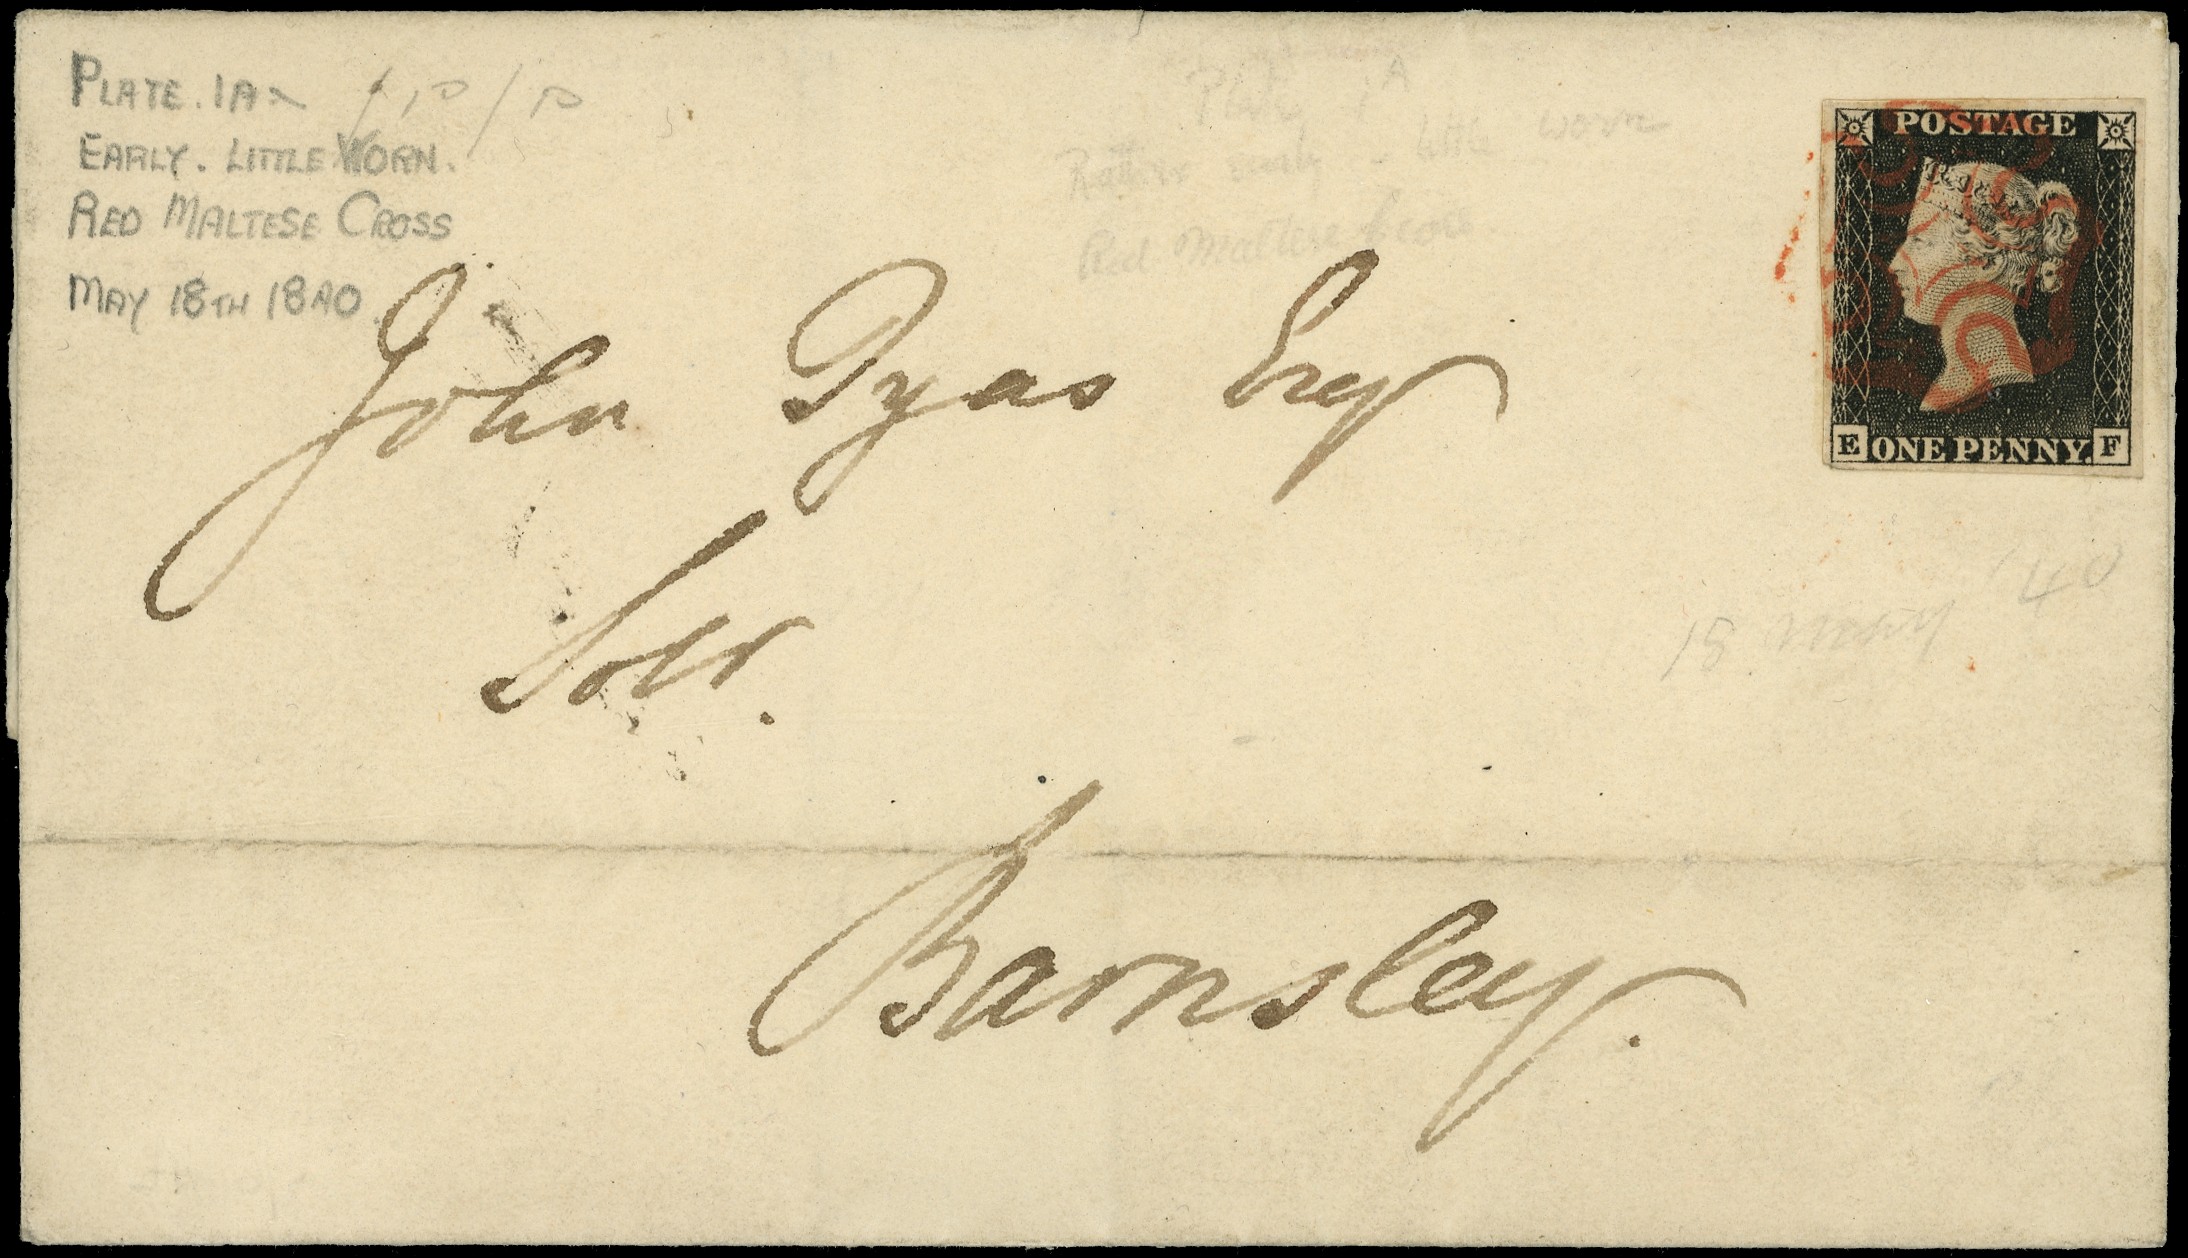 PLATE. 1A
EARLY. LITTLE WORN.
RED MALTESE CROSS
MAY 18TH 1840
Plate 1A
Rather early - little worn
Red Maltese Cross
POSTAGE
E ONE PENNY. F
John Dyas Esqr
Solr.
18 May '40
Barnsley.